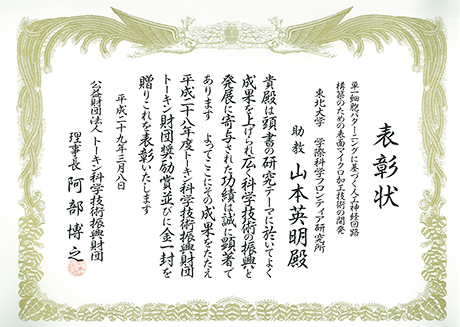 表彰状
単一細胞パターニングに基づく人工神経回路
構築のための表面マイクロ加工技術の開発
東北大学 学際科学フロンティア研究所
助教 山本英明殿
貴殿は頭書の研究テーマに於いてよく
成果を上げられ広く科学技術の振興と
発展に寄与された功績は誠に顕著で
あります よってここにその成果をたたえ
平成二十八年度トーキン科学技術振興財団
トーキン財団奨励賞並びに金一封を
贈りこれを表彰いたします
平成二十九年三月八日
公益財団法人 トーキン科学技術振興財団
理事長 阿部博之